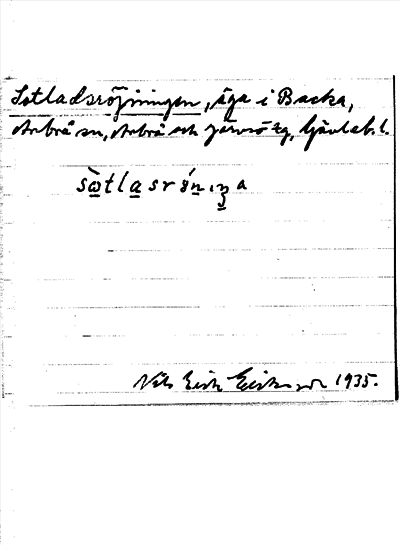 Sotladsröjningen, äga i Backa,
Arbrå sn, Arbrå och Järvsö tg, Gävleb. l.
sωtlasrön.ıŋa
Nils Erik Eriksson 1935.